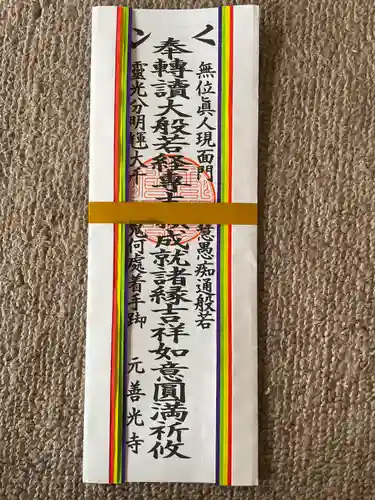 無位眞人現面門 慧愚痴通般若
奉轉讀大般若経專 成就諸縁吉祥如意圓滿祈攸
靈光分明輝大千 鬼何處着手脚 元善光寺